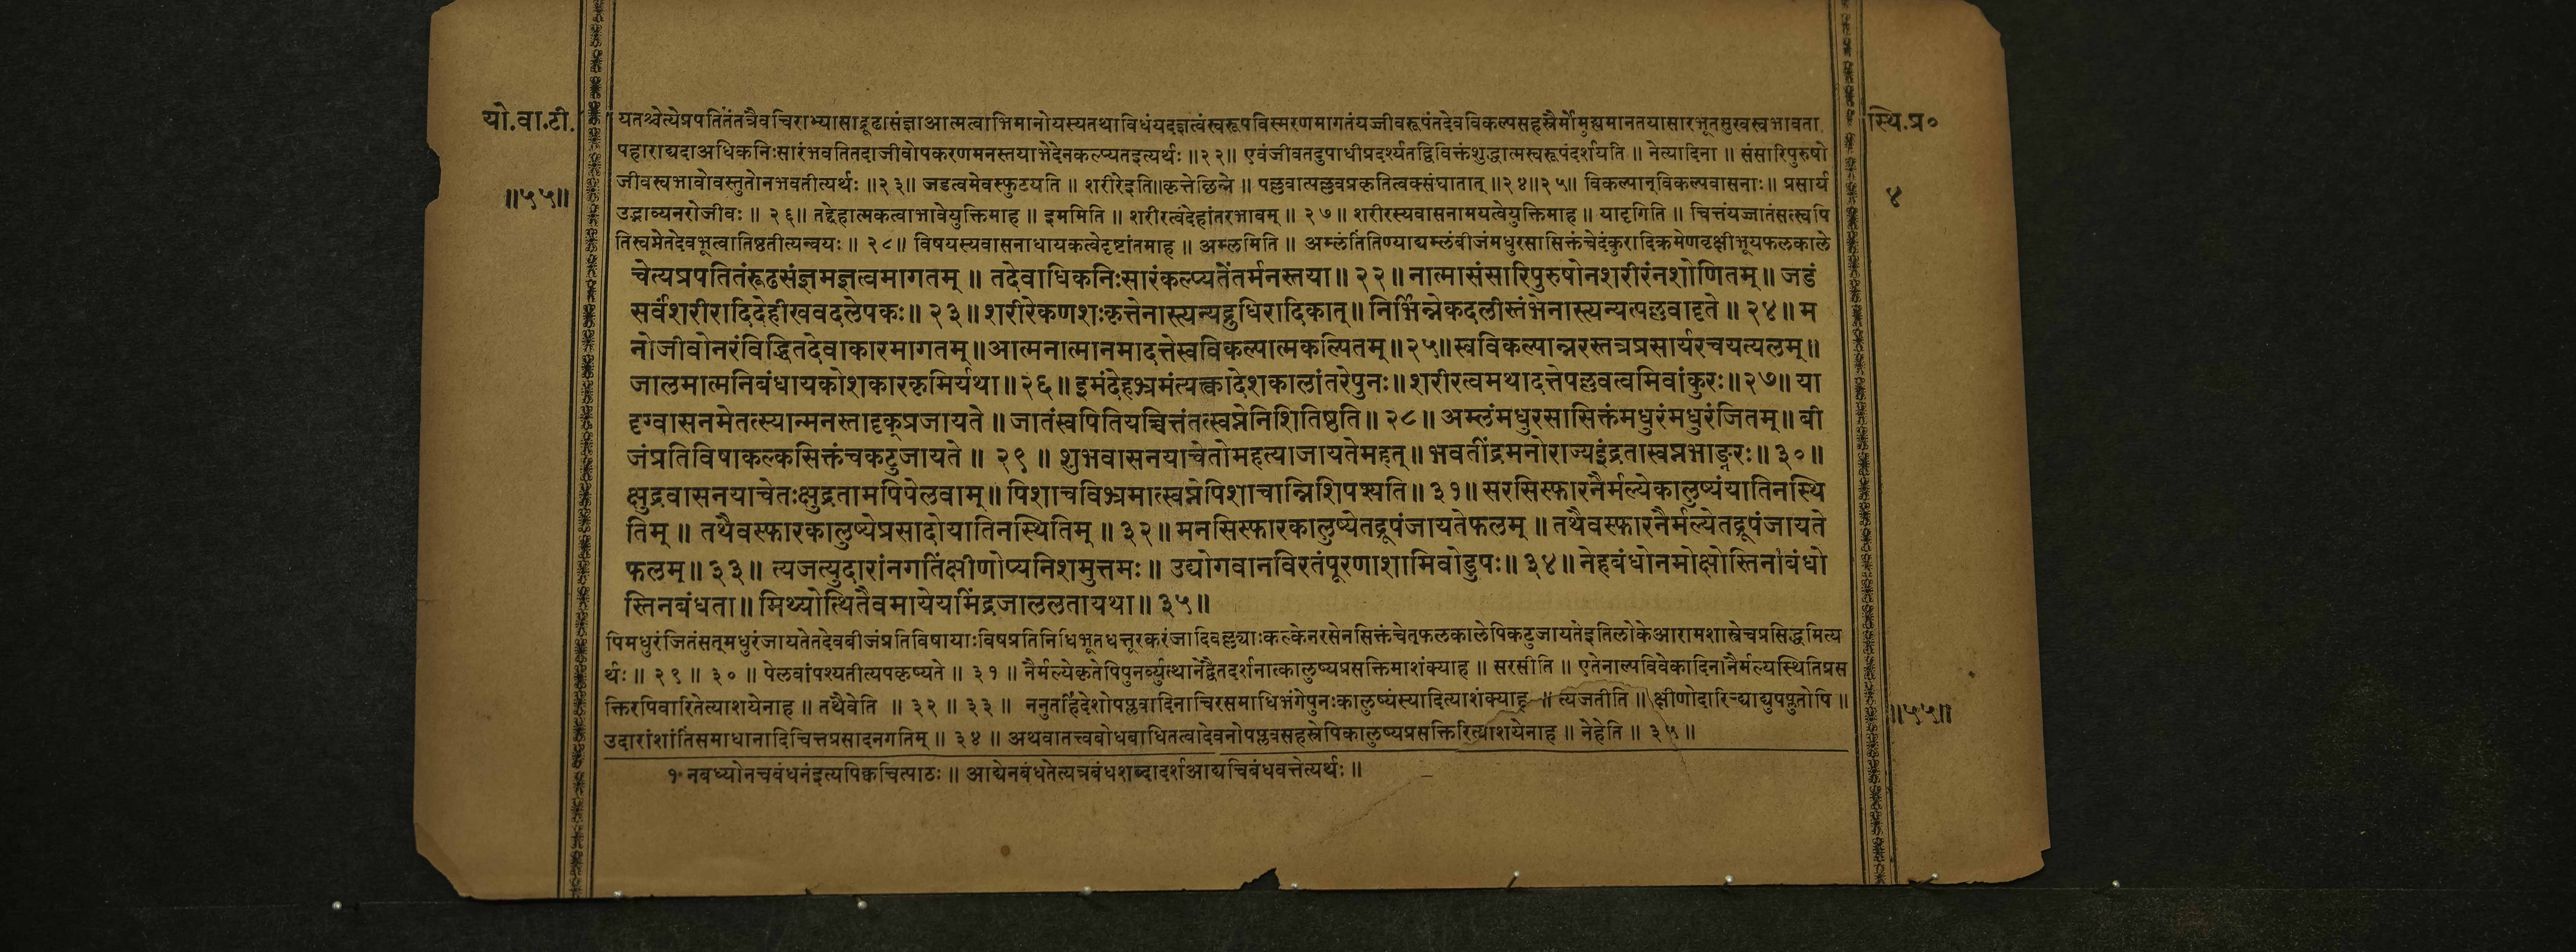 यो.वा.टी.
॥५५॥
स्थि.प्र०
४
यतश्चेत्येप्रपतितंतत्रैवचिराभ्यासाद्रूढासंज्ञाआत्मत्वाभिमानोयस्यतथाविधंयदज्ञत्वंस्वरूपविस्मरणमागतंयज्जीवरूपंतदेवविकल्पसहस्रैर्मोमुह्यमानतयासारभूतसुखस्वभावता
पहाराद्यदाअधिकनिःसारंभवतितदाजीवोपकरणमनस्तयाभेदेनकल्प्यतइत्यर्थः ॥२२॥ एवंजीवतदुपाधीप्रदर्श्यतद्विविक्तंशुद्धात्मस्वरूपंदर्शयति ॥ नेत्यादिना ॥ संसारिपुरुषो
जीवस्वभावोवस्तुतोनभवतीत्यर्थः ॥२३॥ जडत्वमेवस्फुटयति ॥ शरीरेइति॥कृत्तेछिन्ने ॥ पल्लवात्पल्लवप्रकृतित्वक्संघातात् ॥२४॥२५॥ विकल्पान्विकल्पवासनाः॥ प्रसार्य
उद्भाव्यनरोजीवः ॥ २६॥ तद्देहात्मकत्वाभावेयुक्तिमाह ॥ इममिति ॥ शरीरत्वंदेहांतरभावम् ॥ २७॥ शरीरस्यवासनामयत्वेयुक्तिमाह ॥ यादृगिति ॥ चित्तंयज्जातंसत्स्वपि
तिस्वमेतदेवभूत्वातिष्ठतीत्यन्वयः ॥ २८॥ विषयस्यवासनाधायकत्वेदृष्टांतमाह ॥ अम्लमिति ॥ अम्लंतिंतिण्याद्यम्लंबीजंमधुरसासिक्तंचेदंकुरादिक्रमेणवृक्षीभूयफलकाले
चेत्यप्रपतितंरूढसंज्ञमज्ञत्वमागतम् ॥ तदेवाधिकनिःसारंकल्प्यतेंतर्मनस्तया॥ २२॥ नात्मासंसारिपुरुषोनशरीरंनशोणितम्॥ जडं
सर्वंशरीरादिदेहीखवदलेपकः॥ २३॥ शरीरेकणशःकृत्तेनास्त्यन्यद्रुधिरादिकात्॥ निर्भिन्नेकदलीस्तंभेनास्त्यन्यत्पल्लवादृते ॥ २४॥ म
नोजीवोनरंविद्धितदेवाकारमागतम्॥आत्मनात्मानमादत्तेस्वविकल्पात्मकल्पितम्॥२५॥स्वविकल्पान्नरस्तत्रप्रसार्यरचयत्यलम्॥
जालमात्मनिबंधायकोशकारकृमिर्यथा॥२६॥इमंदेहभ्रमंत्यक्त्वादेशकालांतरेपुनः॥शरीरत्वमथादत्तेपल्लवत्वमिवांकुरः॥२७॥ या
दृग्वासनमेतत्स्यान्मनस्तादृक्प्रजायते ॥ जातंस्वपितियच्चित्तंतत्स्वप्नेनिशितिष्ठति॥ २८॥ अम्लंमधुरसासिक्तंमधुरंमधुरंजितम्॥ बी
जंप्रतिविषाकल्कसिक्तंचकटुजायते ॥ २९ ॥ शुभवासनयाचेतोमहत्याजायतेमहत्॥ भवतींद्रमनोराज्यइंद्रतास्वप्नभाङ्नरः॥ ३०॥
क्षुद्रवासनयाचेतःक्षुद्रतामपिपेलवाम्॥ पिशाचविभ्रमात्स्वप्नेपिशाचान्निशिपश्यति॥ ३१॥ सरसिस्फारनैर्मल्येकालुष्यंयातिनस्थि
तिम् ॥ तथैवस्फारकालुष्येप्रसादोयातिनस्थितिम् ॥ ३२॥ मनसिस्फारकालुष्येतद्रूपंजायतेफलम् ॥ तथैवस्फारनैर्मल्येतद्रूपंजायते
फलम्॥ ३३॥ त्यजत्युदारांनगतिंक्षीणोप्यनिशमुत्तमः॥ उद्योगवानविरतंपूरणाशामिवोडुपः॥ ३४॥ नेहबंधोनमोक्षोस्तिना१बंधो
स्तिनबंधता॥ मिथ्योत्थितैवमायेयमिंद्रजाललतायथा॥ ३५॥
पिमधुरंजितंसत्मधुरंजायतेतदेवबीजंप्रतिविषायाःविषप्रतिनिधिभूतधत्तूरकरंजादिवल्ल्याःकल्केनरसेनसिक्तंचेत्फलकालेपिकटुजायतेइतिलोकेआरामशास्त्रेचप्रसिद्धमित्य
र्थः ॥ २९ ॥ ३० ॥ पेलवांपश्यतीत्यपकृष्यते ॥ ३१ ॥ नैर्मल्येकृतेपिपुनर्व्युत्थानेंद्वैतदर्शनात्कालुष्यप्रसक्तिमाशंक्याह ॥ सरसीति ॥ एतेनाल्पविवेकादिनानैर्मल्यस्थितिप्रस
क्तिरपिवारितेत्याशयेनाह ॥ तथैवेति ॥ ३२ ॥ ३३ ॥ ननुतर्हिदेशोपप्लवादिनाचिरसमाधिभंगेपुनःकालुष्यंस्यादित्याशंक्याह ॥ त्यजतीति ॥ क्षीणोदारिद्र्याद्युपप्लुतोपि ॥
उदारांशांतिसमाधानादिचित्तप्रसादनगतिम् ॥ ३४ ॥ अथवातत्त्वबोधबाधितत्वादेवनोपप्लवसहस्रेपिकालुष्यप्रसक्तिरित्याशयेनाह ॥ नेहेति ॥ ३५ ॥
१ नबध्योनचबंधनंइत्यपिक्वचित्पाठः ॥ आद्येनबंधतेत्यत्रबंधशब्दादर्शआद्यचिबंधवत्तेत्यर्थः ॥
॥५५॥